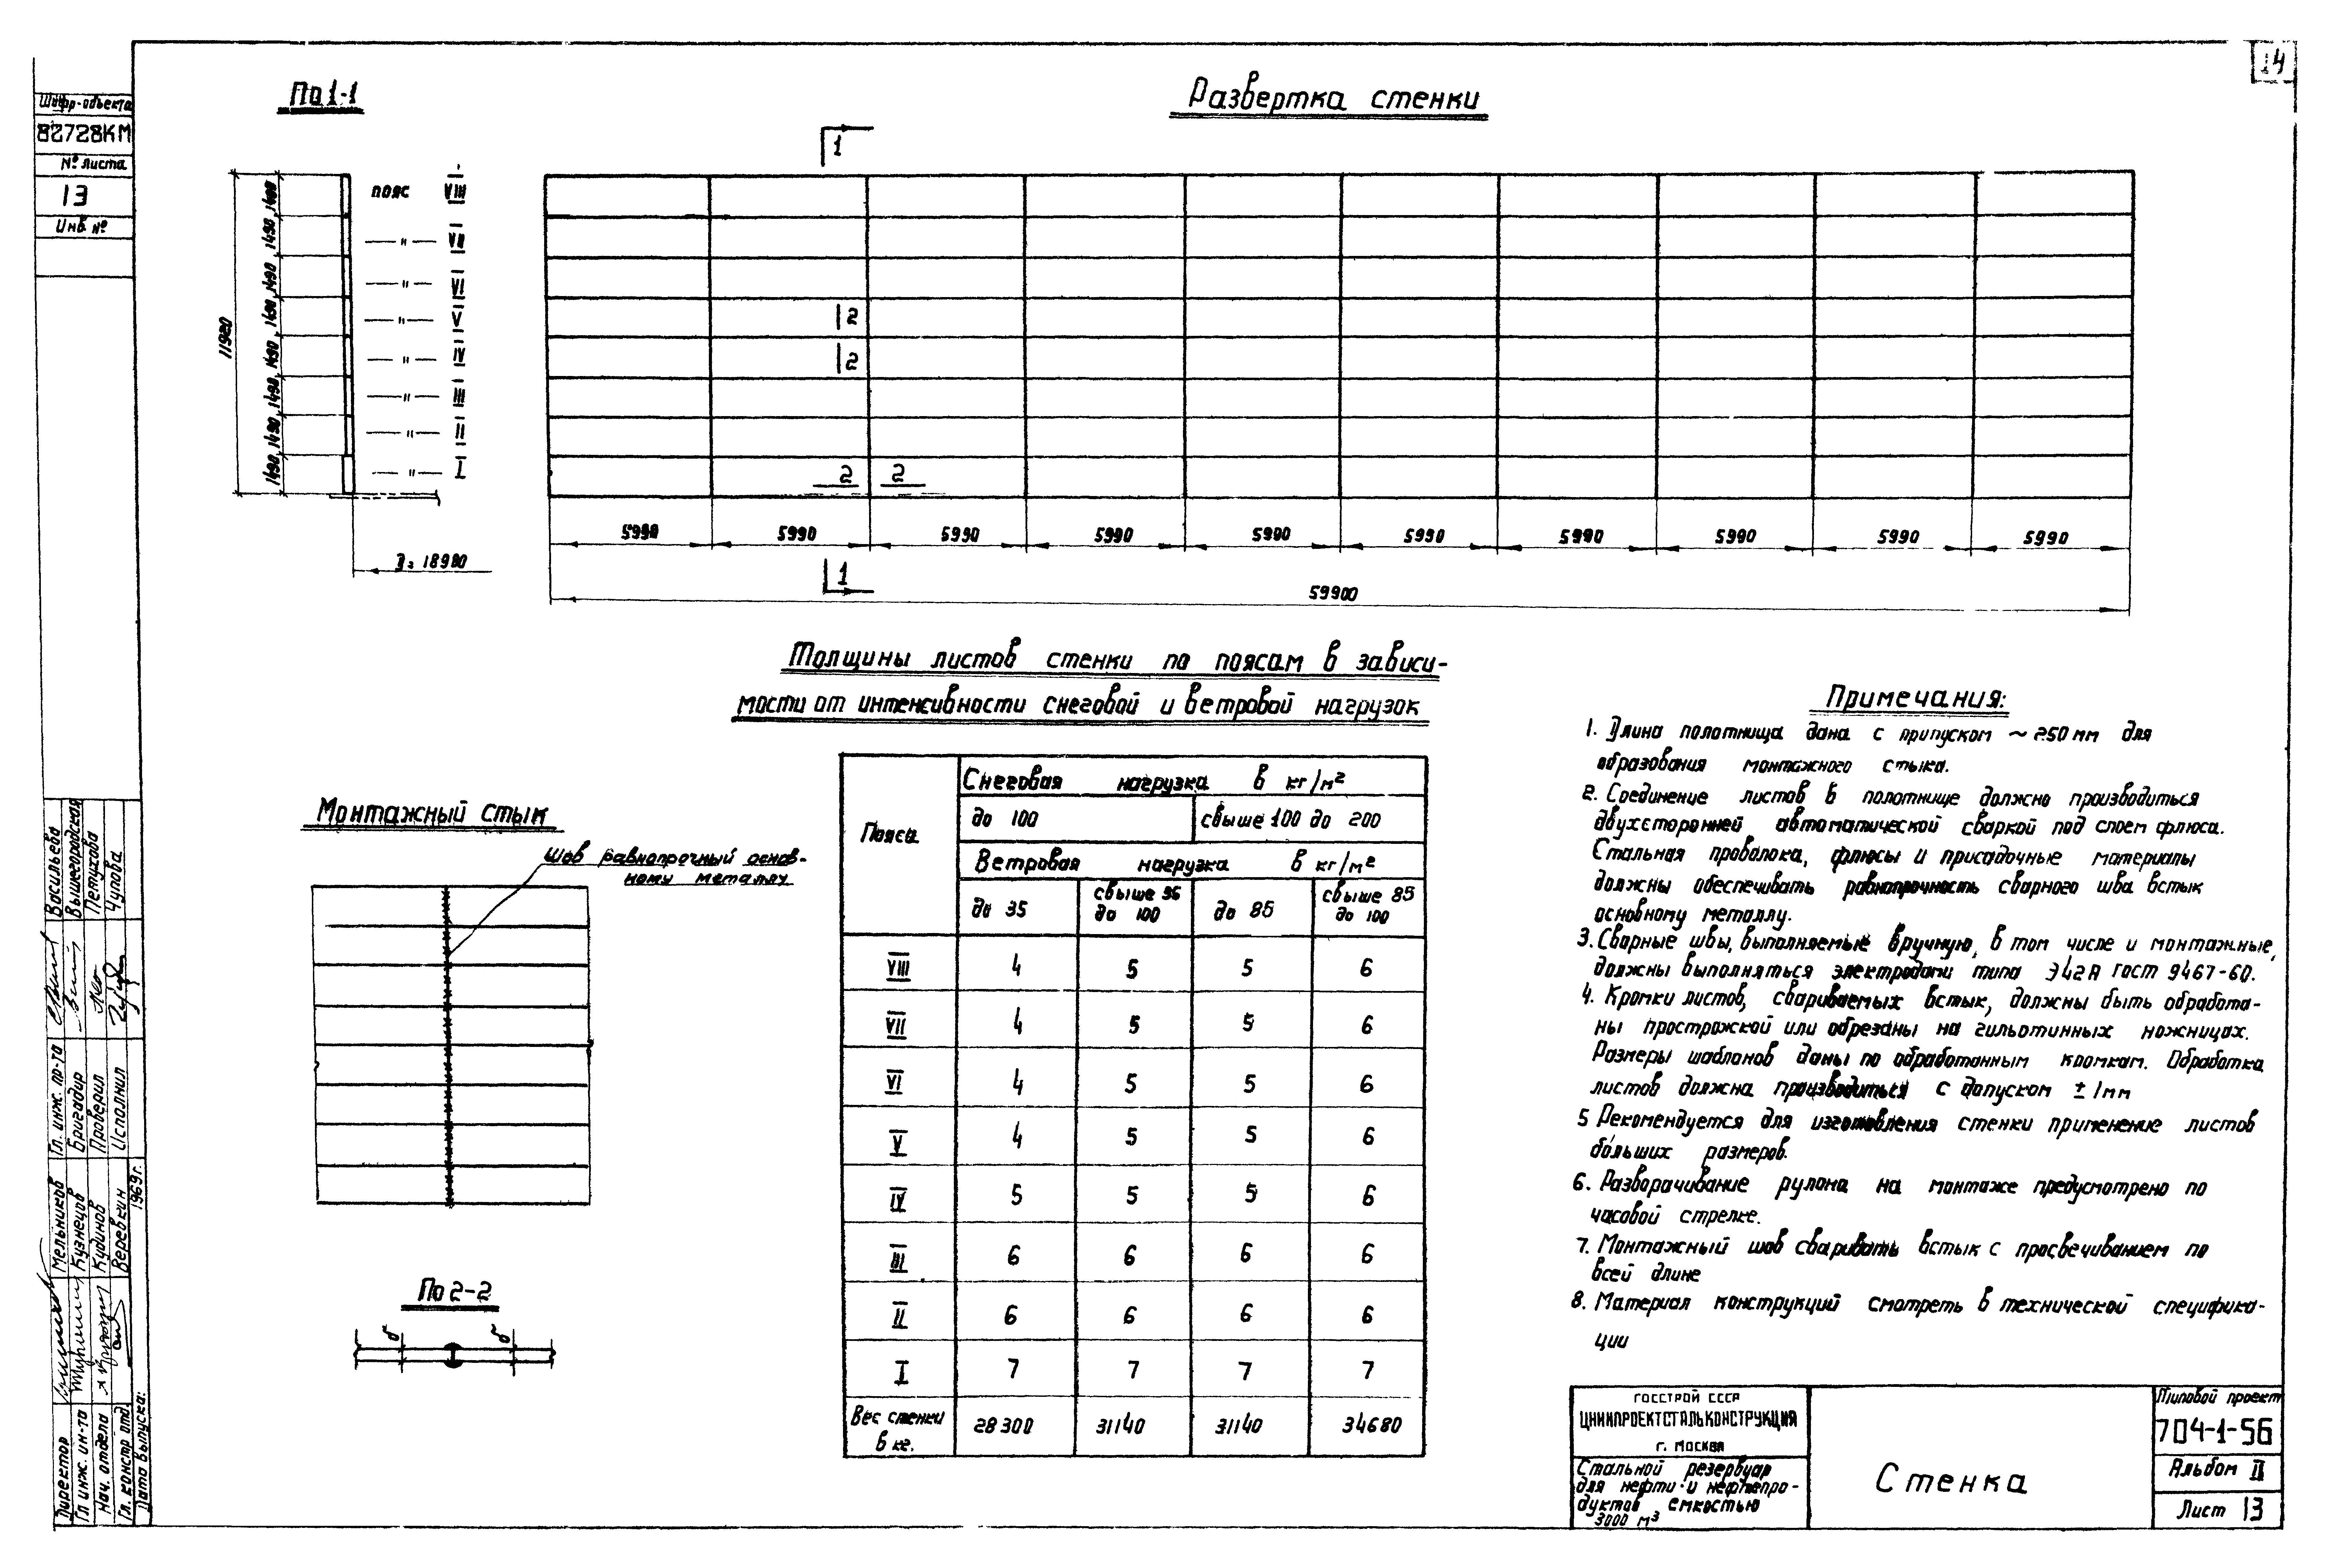 14
Шифр-объекта
82728КМ
№ листа
13
Инв №
По 1-1
Развертка стенки
1
пояс VIII
—"— VII
—"— VI
—"— V
—"— IV
—"— III
—"— II
—"— I
11920
1490 1490 1490 1490 1490 1490 1490 1490
2
2
2 2
5990 5990 5990 5990 5990 5990 5990 5990 5990 5990
Д= 18980
1
59900
Толщины листов стенки по поясам в зависи-
мости от интенсивности снеговой и ветровой нагрузок
Пояса
Снеговая нагрузка в кг/м²
до 100 свыше 100 до 200
Ветровая нагрузка в кг/м²
до 35 свыше 35 до 100 до 85 свыше 85 до 100
VIII 4 5 5 6
VII 4 5 5 6
VI 4 5 5 6
V 4 5 5 6
IV 5 5 5 6
III 6 6 6 6
II 6 6 6 6
I 7 7 7 7
Вес стенки в кг. 28300 31140 31140 34680
Монтажный стык
Шов равнопрочный основ-
ному металлу
По 2-2
δ δ
Примечания:
1. Длина полотнища дана с припуском ~ 250 мм для
образования монтажного стыка.
2. Соединение листов в полотнище должно производиться
двухсторонней автоматической сваркой под слоем флюса.
Стальная проволока, флюсы и присадочные материалы
должны обеспечивать равнопрочность сварного шва встык
основному металлу.
3. Сварные швы, выполняемые вручную, в том числе и монтажные,
должны выполняться электродами типа Э42А ГОСТ 9467-60.
4. Кромки листов, свариваемых встык, должны быть обработа-
ны прострожкой или обрезаны на гильотинных ножницах.
Размеры шаблонов даны по обработанным кромкам. Обработка
листов должна производиться с допуском ± 1мм
5 Рекомендуется для изготовления стенки применение листов
бóльших размеров.
6. Разворачивание рулона на монтаже предусмотрено по
часовой стрелке.
7. Монтажный шов сваривать встык с просвечиванием по
всей длине
8. Материал конструкций смотреть в технической специфика-
ции
ГОССТРОЙ СССР
ЦНИИПРОЕКТСТАЛЬКОНСТРУКЦИЯ
г. Москва
Стальной резервуар
для нефти и нефтепро-
дуктов емкостью
3000 м³
Стенка
Типовой проект
704-1-56
Альбом II
Лист 13
Директор Мельников
Гл инж. ин-та Кузнецов
Нач. отдела Кудинов
Гл. констр отд. Веревкин
Дата выпуска: 1969г.
Гл. инж. пр-та Васильева
Бригадир Вышегородская
Проверил Петухова
Исполнил Чупова